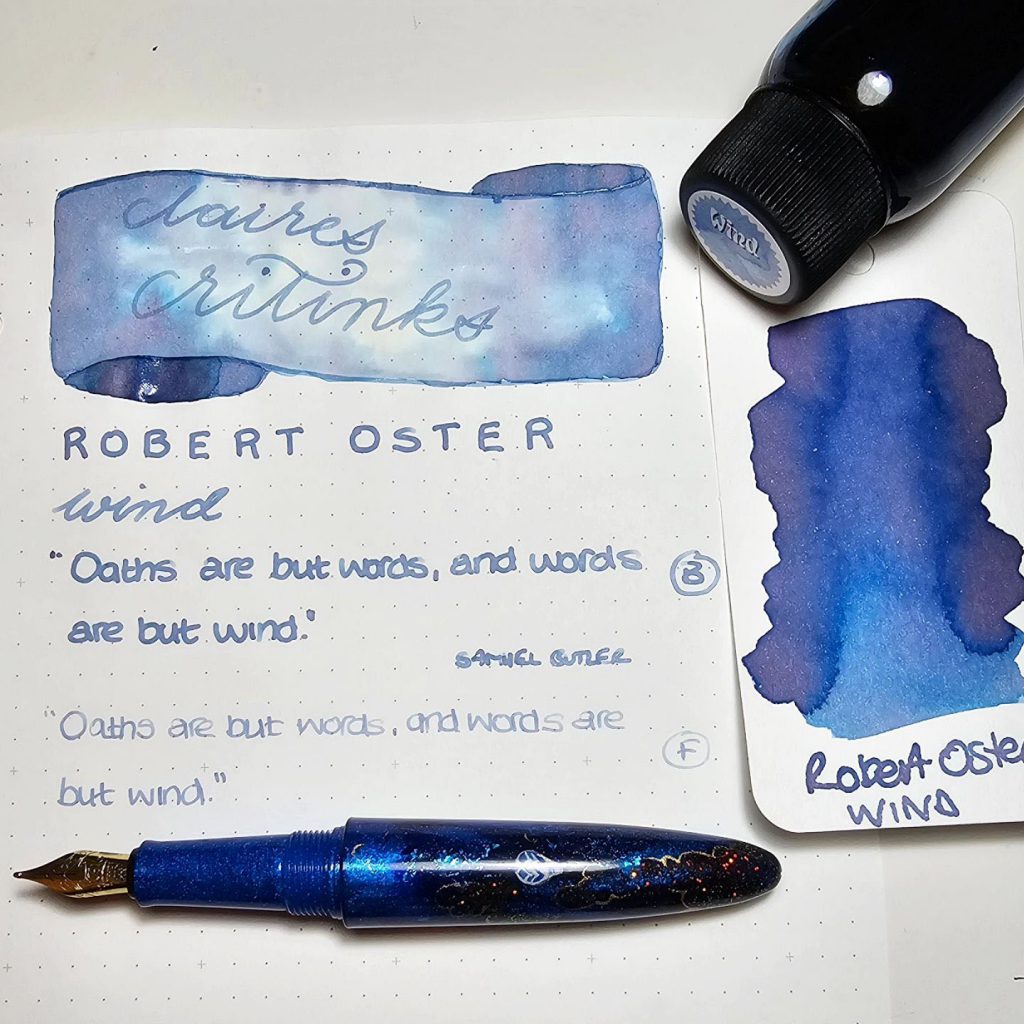 claires
critinks
Wind
ROBERT OSTER
wind
"Oaths are but words, and words
are but wind."
B
SAMUEL BUTLER
"Oaths are but words, and words are
but wind."
F
Robert Oster
WIND